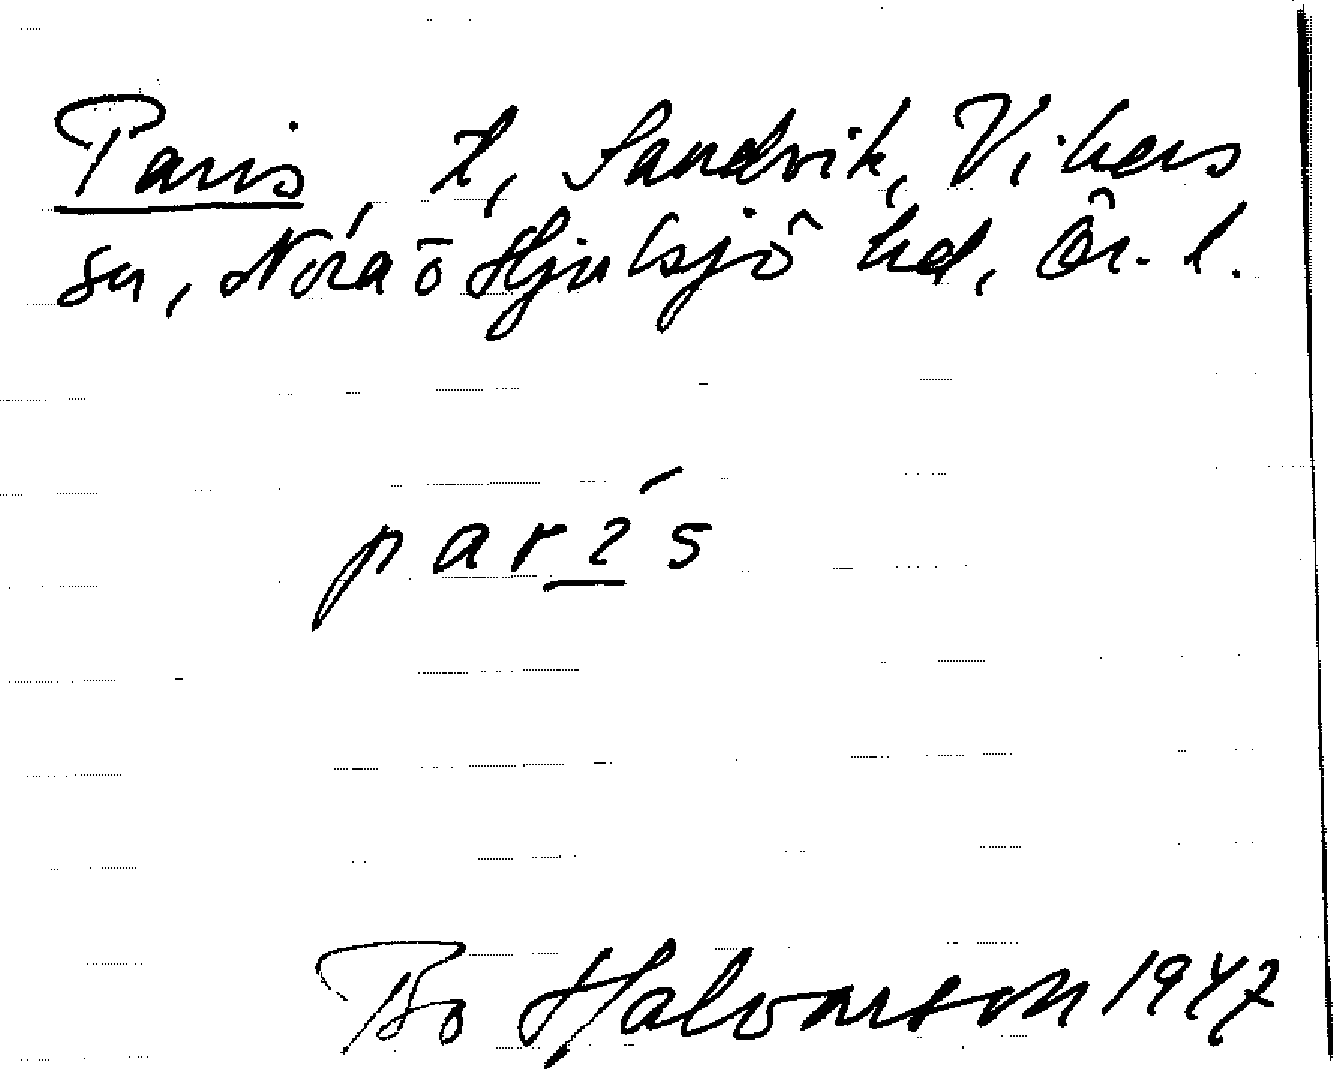 Paris t, Sandvik, Vikers
sn, Nora o Hjulsjö hd, Ör. l.
parís
Bo Halvarson 1947